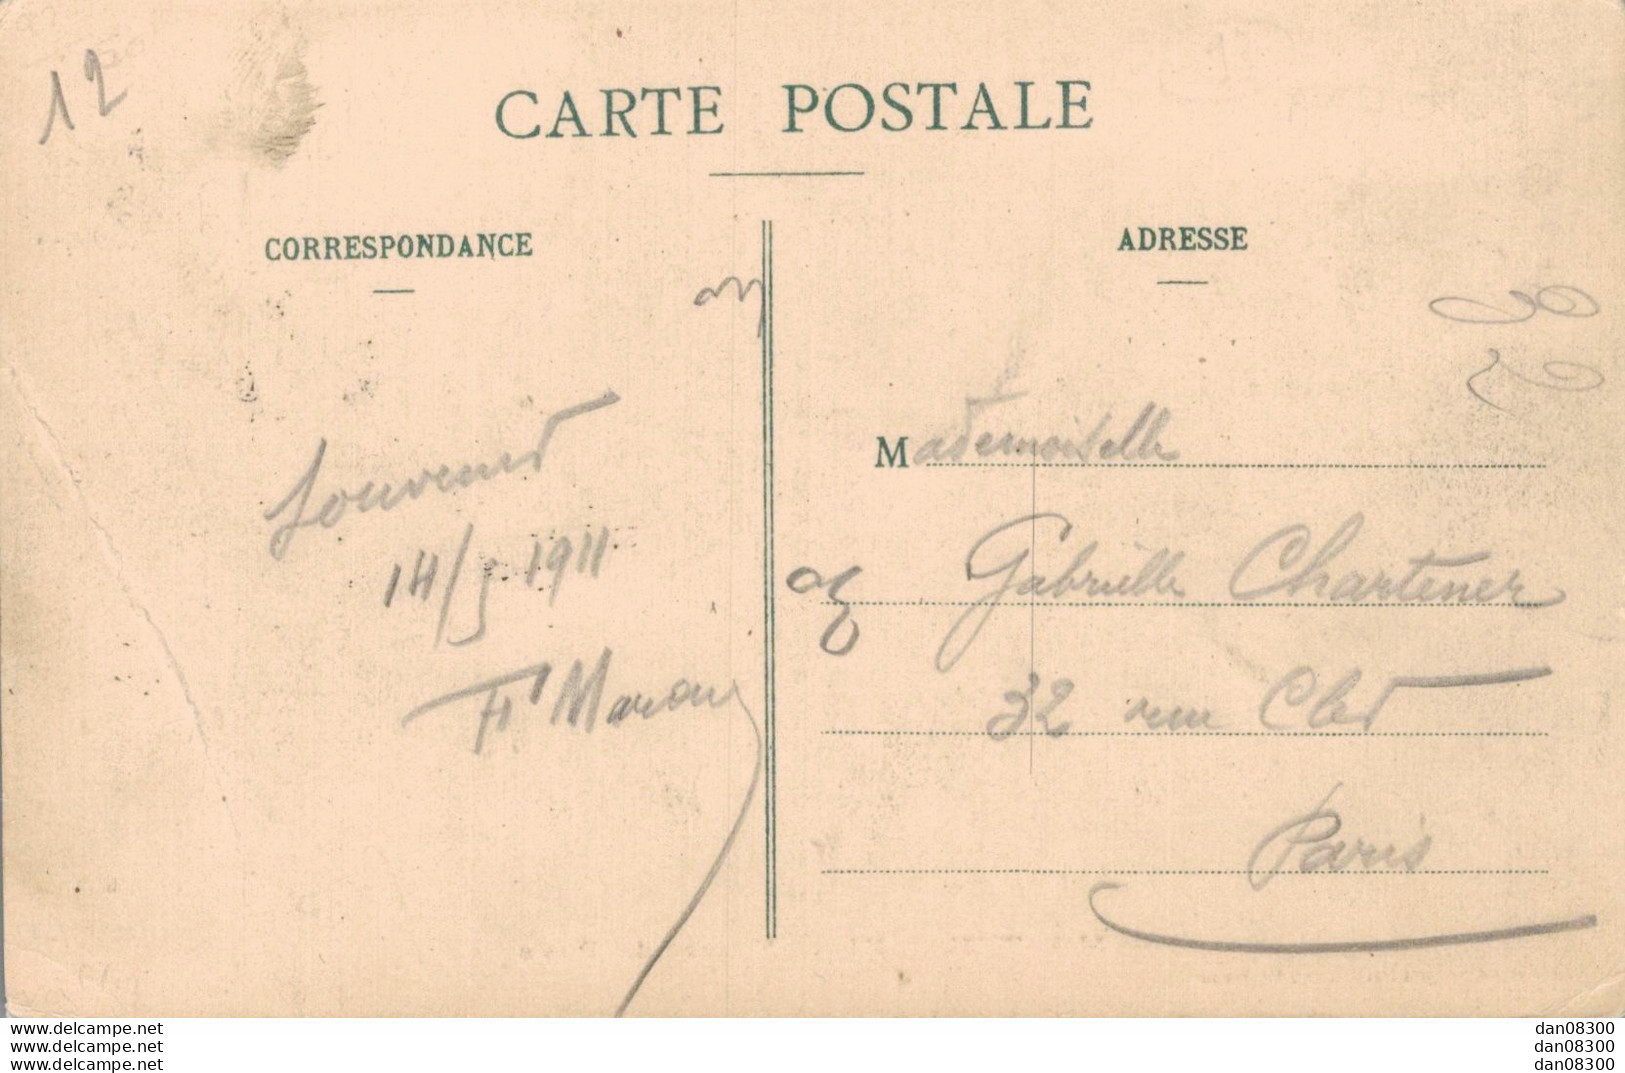 12
CARTE POSTALE
CORRESPONDANCE
ADRESSE
Souvenir
14/5 1911
Mademoiselle
Gabrielle Chartener
32 rue Cler
Paris
www.delcampe.net
www.delcampe.net
www.delcampe.net
dan08300
dan08300
dan08300